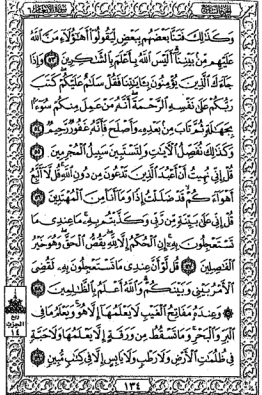 وَكَذَٰلِكَ فَتَنَّا بَعْضَهُم بِبَعْضٍ لِّيَقُولُوٓا۟ أَهَٰٓؤُلَآءِ مَنَّ ٱللَّهُ
عَلَيْهِم مِّنۢ بَيْنِنَآ ۗ أَلَيْسَ ٱللَّهُ بِأَعْلَمَ بِٱلشَّٰكِرِينَ ٥٣ وَإِذَا
جَآءَكَ ٱلَّذِينَ يُؤْمِنُونَ بِـَٔايَٰتِنَا فَقُلْ سَلَٰمٌ عَلَيْكُمْ ۖ كَتَبَ
رَبُّكُمْ عَلَىٰ نَفْسِهِ ٱلرَّحْمَةَ ۖ أَنَّهُۥ مَنْ عَمِلَ مِنكُمْ سُوٓءًۢا
بِجَهَٰلَةٍ ثُمَّ تَابَ مِنۢ بَعْدِهِۦ وَأَصْلَحَ فَأَنَّهُۥ غَفُورٌ رَّحِيمٌ ٥٤
وَكَذَٰلِكَ نُفَصِّلُ ٱلْـَٔايَٰتِ وَلِتَسْتَبِينَ سَبِيلُ ٱلْمُجْرِمِينَ ٥٥
قُلْ إِنِّى نُهِيتُ أَنْ أَعْبُدَ ٱلَّذِينَ تَدْعُونَ مِن دُونِ ٱللَّهِ ۚ قُل لَّآ أَتَّبِعُ
أَهْوَآءَكُمْ ۙ قَدْ ضَلَلْتُ إِذًا وَمَآ أَنَا۠ مِنَ ٱلْمُهْتَدِينَ ٥٦
قُلْ إِنِّى عَلَىٰ بَيِّنَةٍ مِّن رَّبِّى وَكَذَّبْتُم بِهِۦ ۚ مَا عِندِى مَا
تَسْتَعْجِلُونَ بِهِۦٓ ۚ إِنِ ٱلْحُكْمُ إِلَّا لِلَّهِ ۖ يَقُصُّ ٱلْحَقَّ ۖ وَهُوَ خَيْرُ
ٱلْفَٰصِلِينَ ٥٧ قُل لَّوْ أَنَّ عِندِى مَا تَسْتَعْجِلُونَ بِهِۦ لَقُضِىَ
ٱلْأَمْرُ بَيْنِى وَبَيْنَكُمْ ۗ وَٱللَّهُ أَعْلَمُ بِٱلظَّٰلِمِينَ ٥٨
۞ وَعِندَهُۥ مَفَاتِحُ ٱلْغَيْبِ لَا يَعْلَمُهَآ إِلَّا هُوَ ۚ وَيَعْلَمُ مَا فِى
ٱلْبَرِّ وَٱلْبَحْرِ ۚ وَمَا تَسْقُطُ مِن وَرَقَةٍ إِلَّا يَعْلَمُهَا وَلَا حَبَّةٍ
فِى ظُلُمَٰتِ ٱلْأَرْضِ وَلَا رَطْبٍ وَلَا يَابِسٍ إِلَّا فِى كِتَٰبٍ مُّبِينٍ ٥٩
ربع
الحزب
١٤
١٣٤